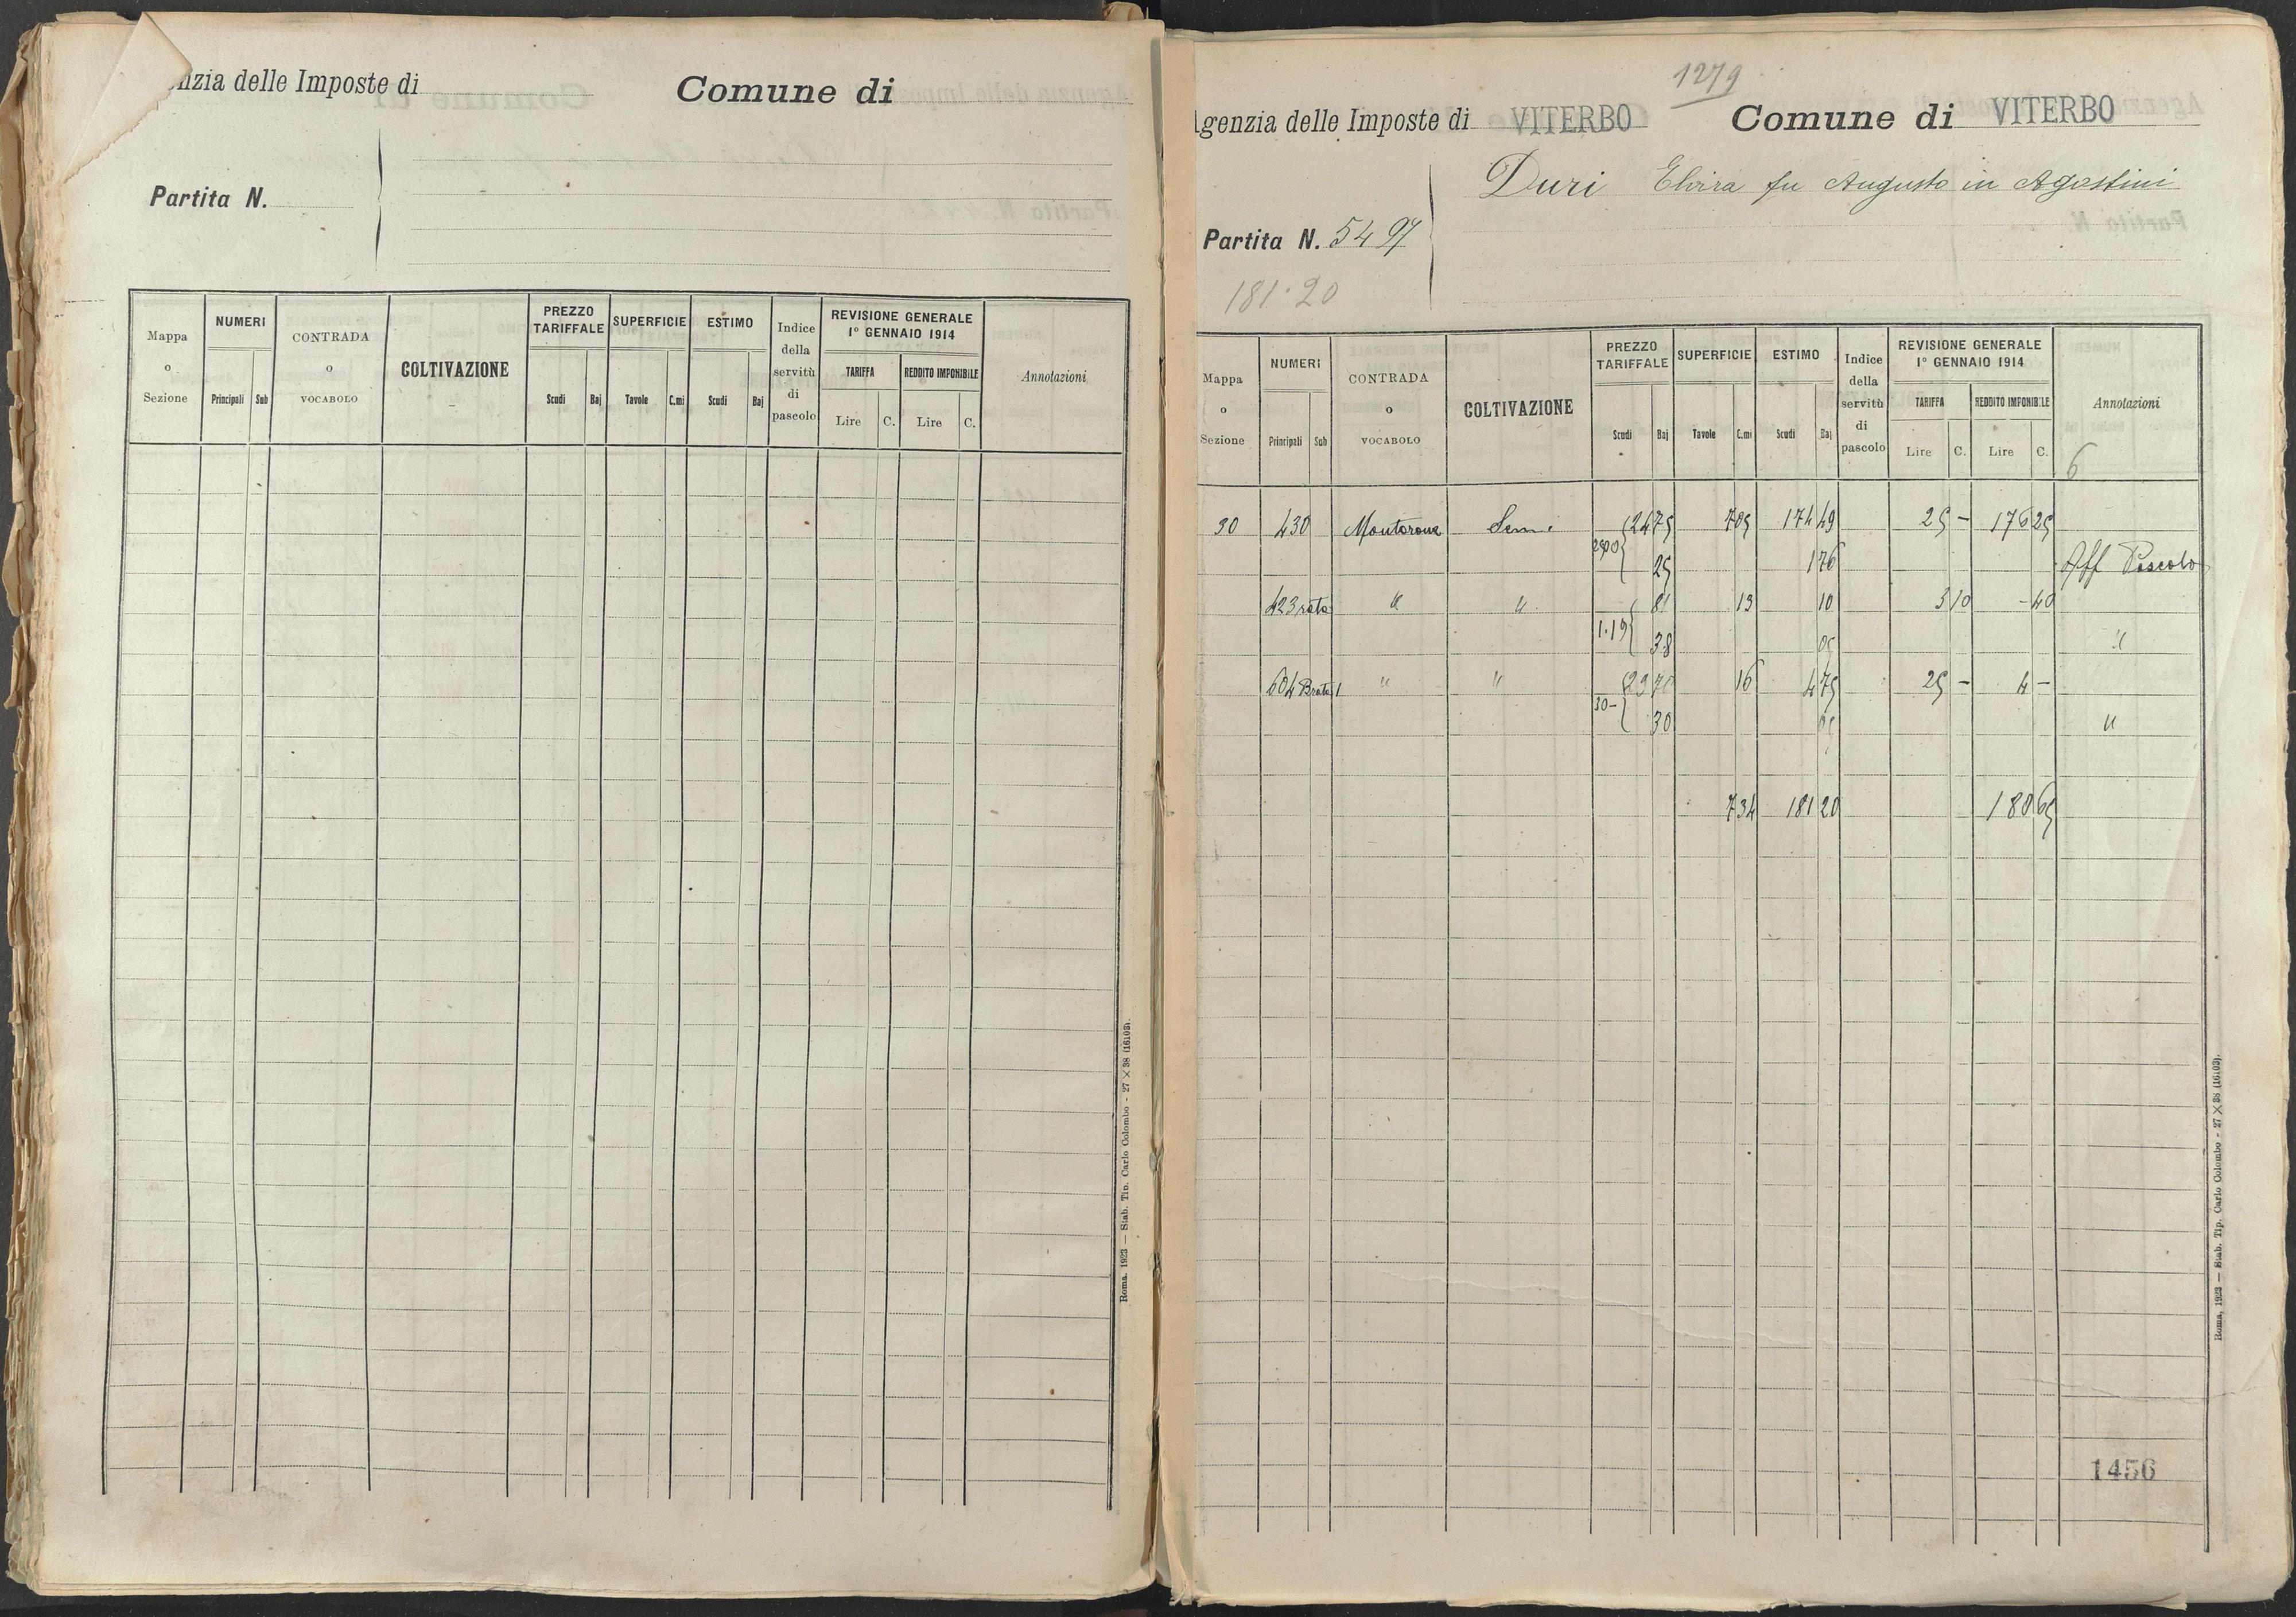 nzia delle Imposte di Comune di
Partita N.
Mappa o Sezione
NUMERI
Principali Sub
CONTRADA o VOCABOLO
COLTIVAZIONE
PREZZO TARIFFALE
Scudi Baj
SUPERFICIE
Tavole C.mi
ESTIMO
Scudi Baj
Indice della servitù di pascolo
REVISIONE GENERALE
1° GENNAIO 1914
TARIFFA REDDITO IMPONIBILE
Lire C. Lire C.
Annotazioni
Roma, 1923 — Stab. Tip. Carlo Colombo - 27 × 38 (16103).
1279
Agenzia delle Imposte di VITERBO Comune di VITERBO
Duri Elvira fu Augusto in Agostini
Partita N. 5497
181.20
Mappa o Sezione
NUMERI
Principali Sub
CONTRADA o VOCABOLO
COLTIVAZIONE
PREZZO TARIFFALE
Scudi Baj
SUPERFICIE
Tavole C.mi
ESTIMO
Scudi Baj
Indice della servitù di pascolo
REVISIONE GENERALE
1° GENNAIO 1914
TARIFFA REDDITO IMPONIBILE
Lire C. Lire C.
Annotazioni
6
30 430 Montorone Sem. 24 75 705 174 49 25 - 176 25
25 1 76 Aff Pascolo
423 rata " " 81 13 10 3 10 - 40
1.19 38 05 "
604 B rata 1 " " 23 70 16 4 75 25 - 4 -
30 - 30 05 "
734 181 20 180 65
Roma, 1923 — Stab. Tip. Carlo Colombo - 27 × 38 (16103).
1456